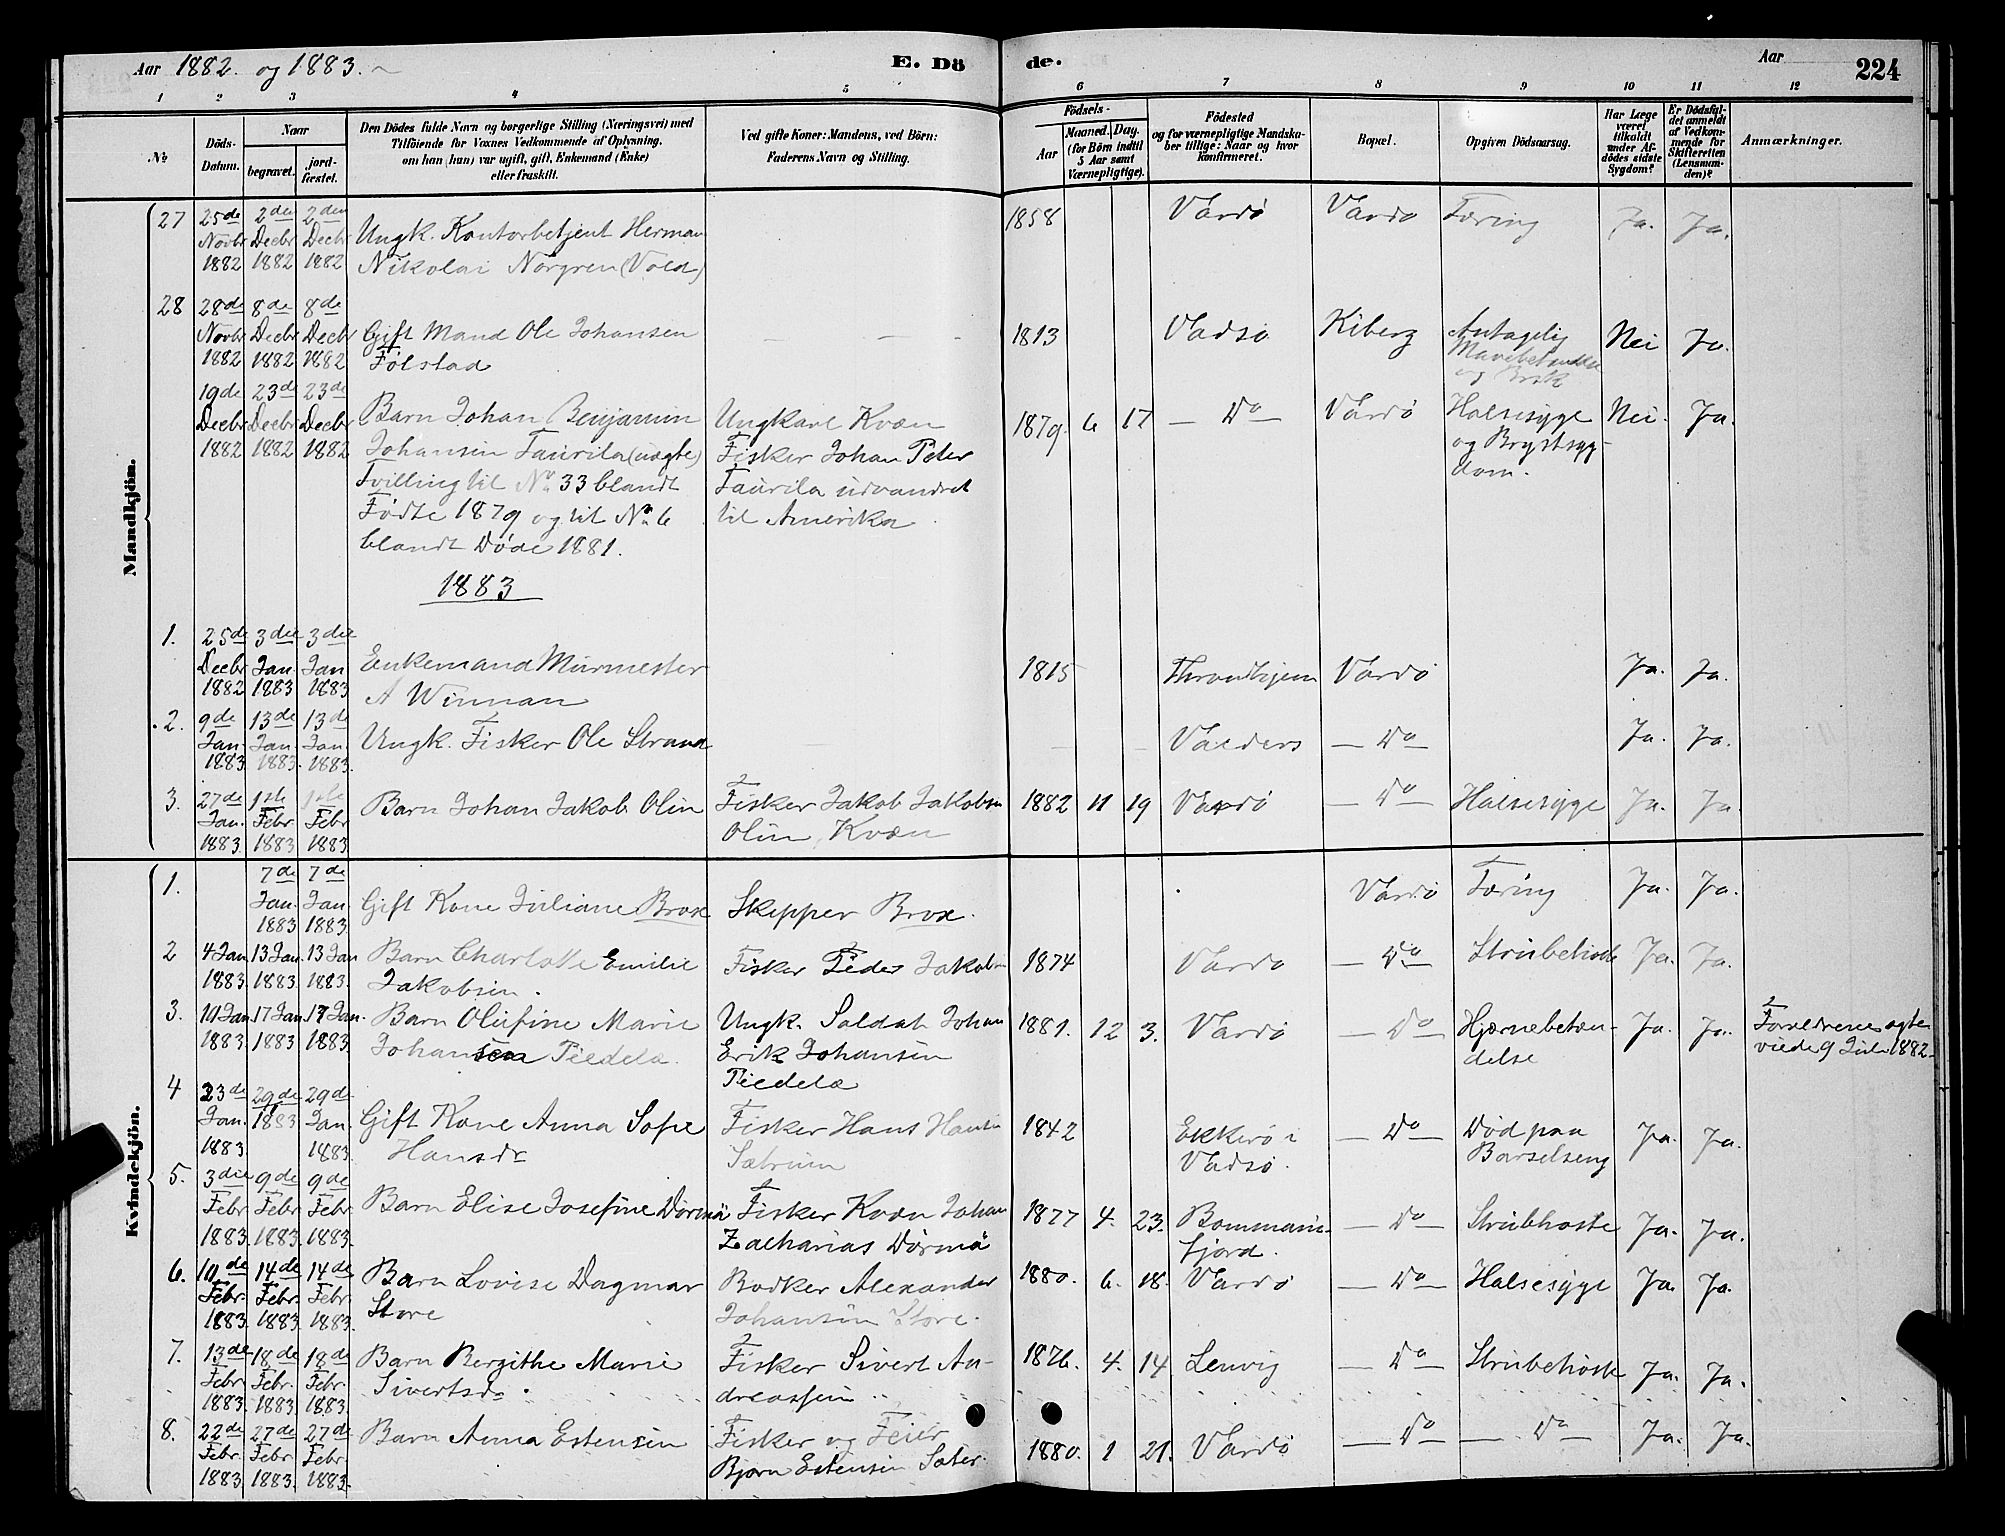 Aar 1882. og 1883.
E. Dö
de.
Aar
224
1 2 3 4 5 6 7 8 9 10 11 12
No
Döds-Datum.
Naar
begravet.
jord-fæstet.
Den Dödes fulde Navn og borgerlige Stilling (Næringsvei) med
Tilföiende for Voxnes Vedkommende af Oplysning,
om han (hun) var ugift, gift, Enkemand (Enke)
eller fraskilt.
Ved gifte Koner: Mandens, ved Börn:
Faderens Navn og Stilling.
Födsels-
Aar
Maaned. Dag.
(for Börn indtil
5 Aar samt
Værnepligtige).
Födested
og for værnepligtige Mandska-
ber tillige: Naar og hvor
konfirmeret.
Bopæl.
Opgiven Dödsaarsag.
Har Læge
været
tilkaldt
under Af-
dödes sidste
Sygdom?
Er Dödsfal-
det anmeldt
af Vedkom-
mende for
Skifteretten
(Lensman-
den)?
Anmærkninger.
Mandkjön.
27 25de 2den 2den
Novbr Decbr Decbr
1882 1882 1882
Ungk. Kontorbetjent Herman
Nikolai Norgren (Vold)
1858 Vardö Vardö Tæring Ja. Ja.
28 28de 8de 8de
Novbr Decbr Decbr
1882 1882 1882
Gift Mand Ole Johansen
Følstad
1813 Vadsö Kiberg Antagelig
Nei Ja.
19de 23de 23de
Decbr Decbr Decbr
1882 1882 1882
Barn Johan Benjamin
Johansen Taurila (uægte)
Tvilling til No 33 blandt
Fødte 1879 og til No 6
blandt Døde 1881.
Ungkarl Kvæn
Fisker Johan Peter
Taurila udvandret
til Amerika
1879. 6 17 — Do — Vardö Halsesyge
og Brystsyg-
dom.
Nei. Ja.
1883
1. 25de 3die 3die
Decbr Jan Jan
1882 1883 1883
Enkemand Murmester
A Winnan
1815 Throndhjem Vardö Ja. Ja.
2. 9de 13de 13de
Jan. Jan. Jan
1883. 1883. 1883.
Ungk. Fisker Ole Strand
Valders — Do — Ja. Ja.
3. 27de 1ste 1ste
Jan. Febr Febr
1883. 1883 1883.
Barn Johan Jakob Olin
Fisker Jakob Jakobsen
Olin, Kvæn
1882 11 19 Vardö — Do — Halsesyge Ja. Ja.
Kvindekjön.
1. 7de 7de
Jan. Jan
1883 1883.
Gift Kone Juliane Brox Skipper Brox.
Vardö Tæring Ja. Ja.
2 4 Jan 13 Jan. 13 Jan
1883. 1883. 1883.
Barn Charlotte Emilie
Jakobsen.
Fisker Peder Jakobsen
1874 Vardö — Do — Strubehoste Ja. Ja.
3. 10 Jan 17 Jan 17 Jan.
1883. 1883 1883.
Barn Olufine Marie
Johansen Piedelæ.
Ungk. Soldat Johan
Erik Johansen
Piedelæ
1881. 12 3. Vardö — Do — Hjernebetæn-
delse
Ja. Ja.
Forældrenes ægte
viede 9 Juli 1882.
4 23de 29de 29de
Jan. 1883 Jan.
1883. 1883.
Gift Kone Anna Sofie
Hansdr
Fisker Hans Hansen
Sætrum
1842 Ekkerö i
Vadsö.
— Do — Død paa
Barselseng
Ja. Ja.
5. 3die 9de 9de
Febr Febr Febr
1883. 1883. 1883.
Barn Elise Josefine Dörmä
Fisker Kvæn Johan
Zacharias Dörmä
1877 4. 23. Bommani-
fjord.
— Do — Strubhoste Ja. Ja.
6. 10de 14de 14de
Febr. Febr. Febr
1883. 1883. 1883.
Barn Lovise Dagmar
Store
Bødker Alexander
Johansen Store.
1880. 6. 18. Vardö — Do — Halsesyge Ja. Ja.
7. 13de 18de 18de
Febr Febr. Febr.
1883. 1883. 1883.
Barn Bergithe Marie
Sivertsdr.
Fisker Sivert An-
dreassen
1876. 4. 14. Lenvig — Do — Strubehoste Ja. Ja.
8. 22de 27de 27de
Febr Febr Febr.
1883. 1883. 1883.
Barn Anna Estensen
Fisker og Feier
Bjørn Estensen Sæter.
1880. 1 21. Vardö — Do — — Do — Ja. Ja.